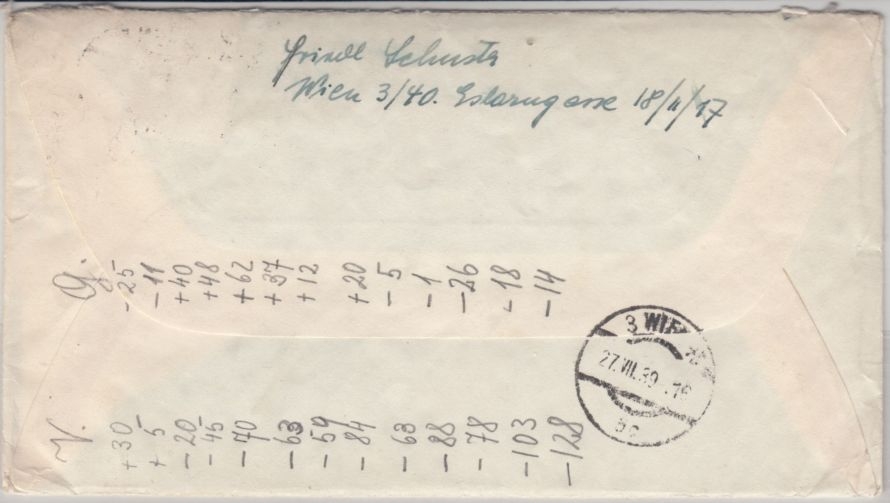 Friedl Schuster
Wien 3/40. Eslarngasse 18/II/17
G.
-25
-11
+40
+48
+62
+37
+12
+20
-5
-1
-26
-18
-14
V.
+30
+5
-20
-45
-70
-63
-59
-84
-63
-88
-78
-103
-128
3 WIEN
27.VII.39